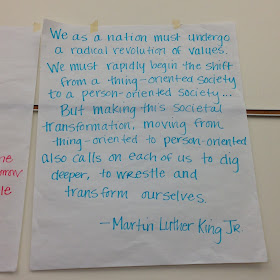 We as a nation must undergo
a radical revolution of values.
We must rapidly begin the shift
from a thing-oriented society
to a person-oriented society...
But making this societal
transformation, moving from
thing-oriented to person-oriented
also calls on each of us to dig
deeper, to wrestle and
transform ourselves.
—Martin Luther King Jr.